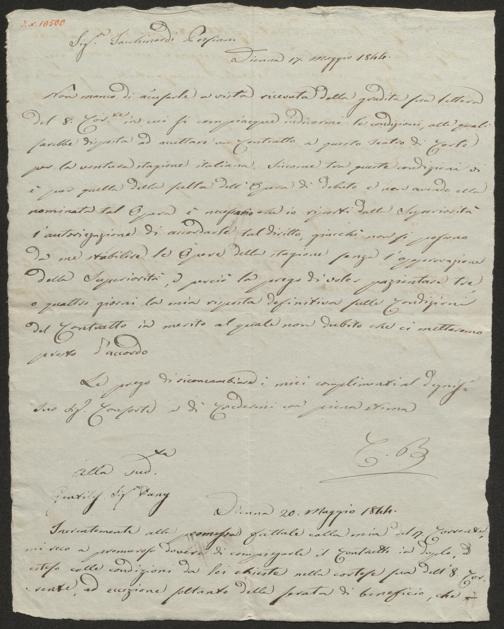 Sig.ra Tacchinardi Persiani
Vienna 17. Maggio 1844.
Non manco di risposta a vista ricevuta della gradita sua lettera
del 8. Cor.te in cui si compiacque indicarmi le condizioni, alle quali
sarebbe disposta ad accettare un Contratto a questo Teatro di Corte
per la ventura stagione italiana. Siccome tra queste condizioni vi
è pur quella della scelta dell'Opera di debito e non avendo ella
nominata tal Opera è necessario che io riporti dalla Superiorità
l'autorizzazione di accordarle tal diritto, giacchè non si possono
da me stabilire le Opere della stagione senza l'approvazione
della Superiorità, e perciò la prego di voler pazientare tre
o quattro giorni la mia risposta definitiva sulle Condizioni
del Contratto in merito al quale non dubito che ci metteremo
presto d'accordo
La prego di ricambiare i miei complimenti al degniss.
suo Sig. Consorte e di credermi con piena stima
C. B
Alla sud.ta
Gentil.ma Sig.ra
Vienna 20. Maggio 1844.
Inerentemente alla promessa fattale colla mia del 17 Corrente,
mi reco a premuroso dovere di compiegarle il Contratto in duplo,
esteso colle condizioni da lei chieste nella cortese sua dell' 8. Cor-
rente, ad eccezione soltanto della serata di beneficio, che